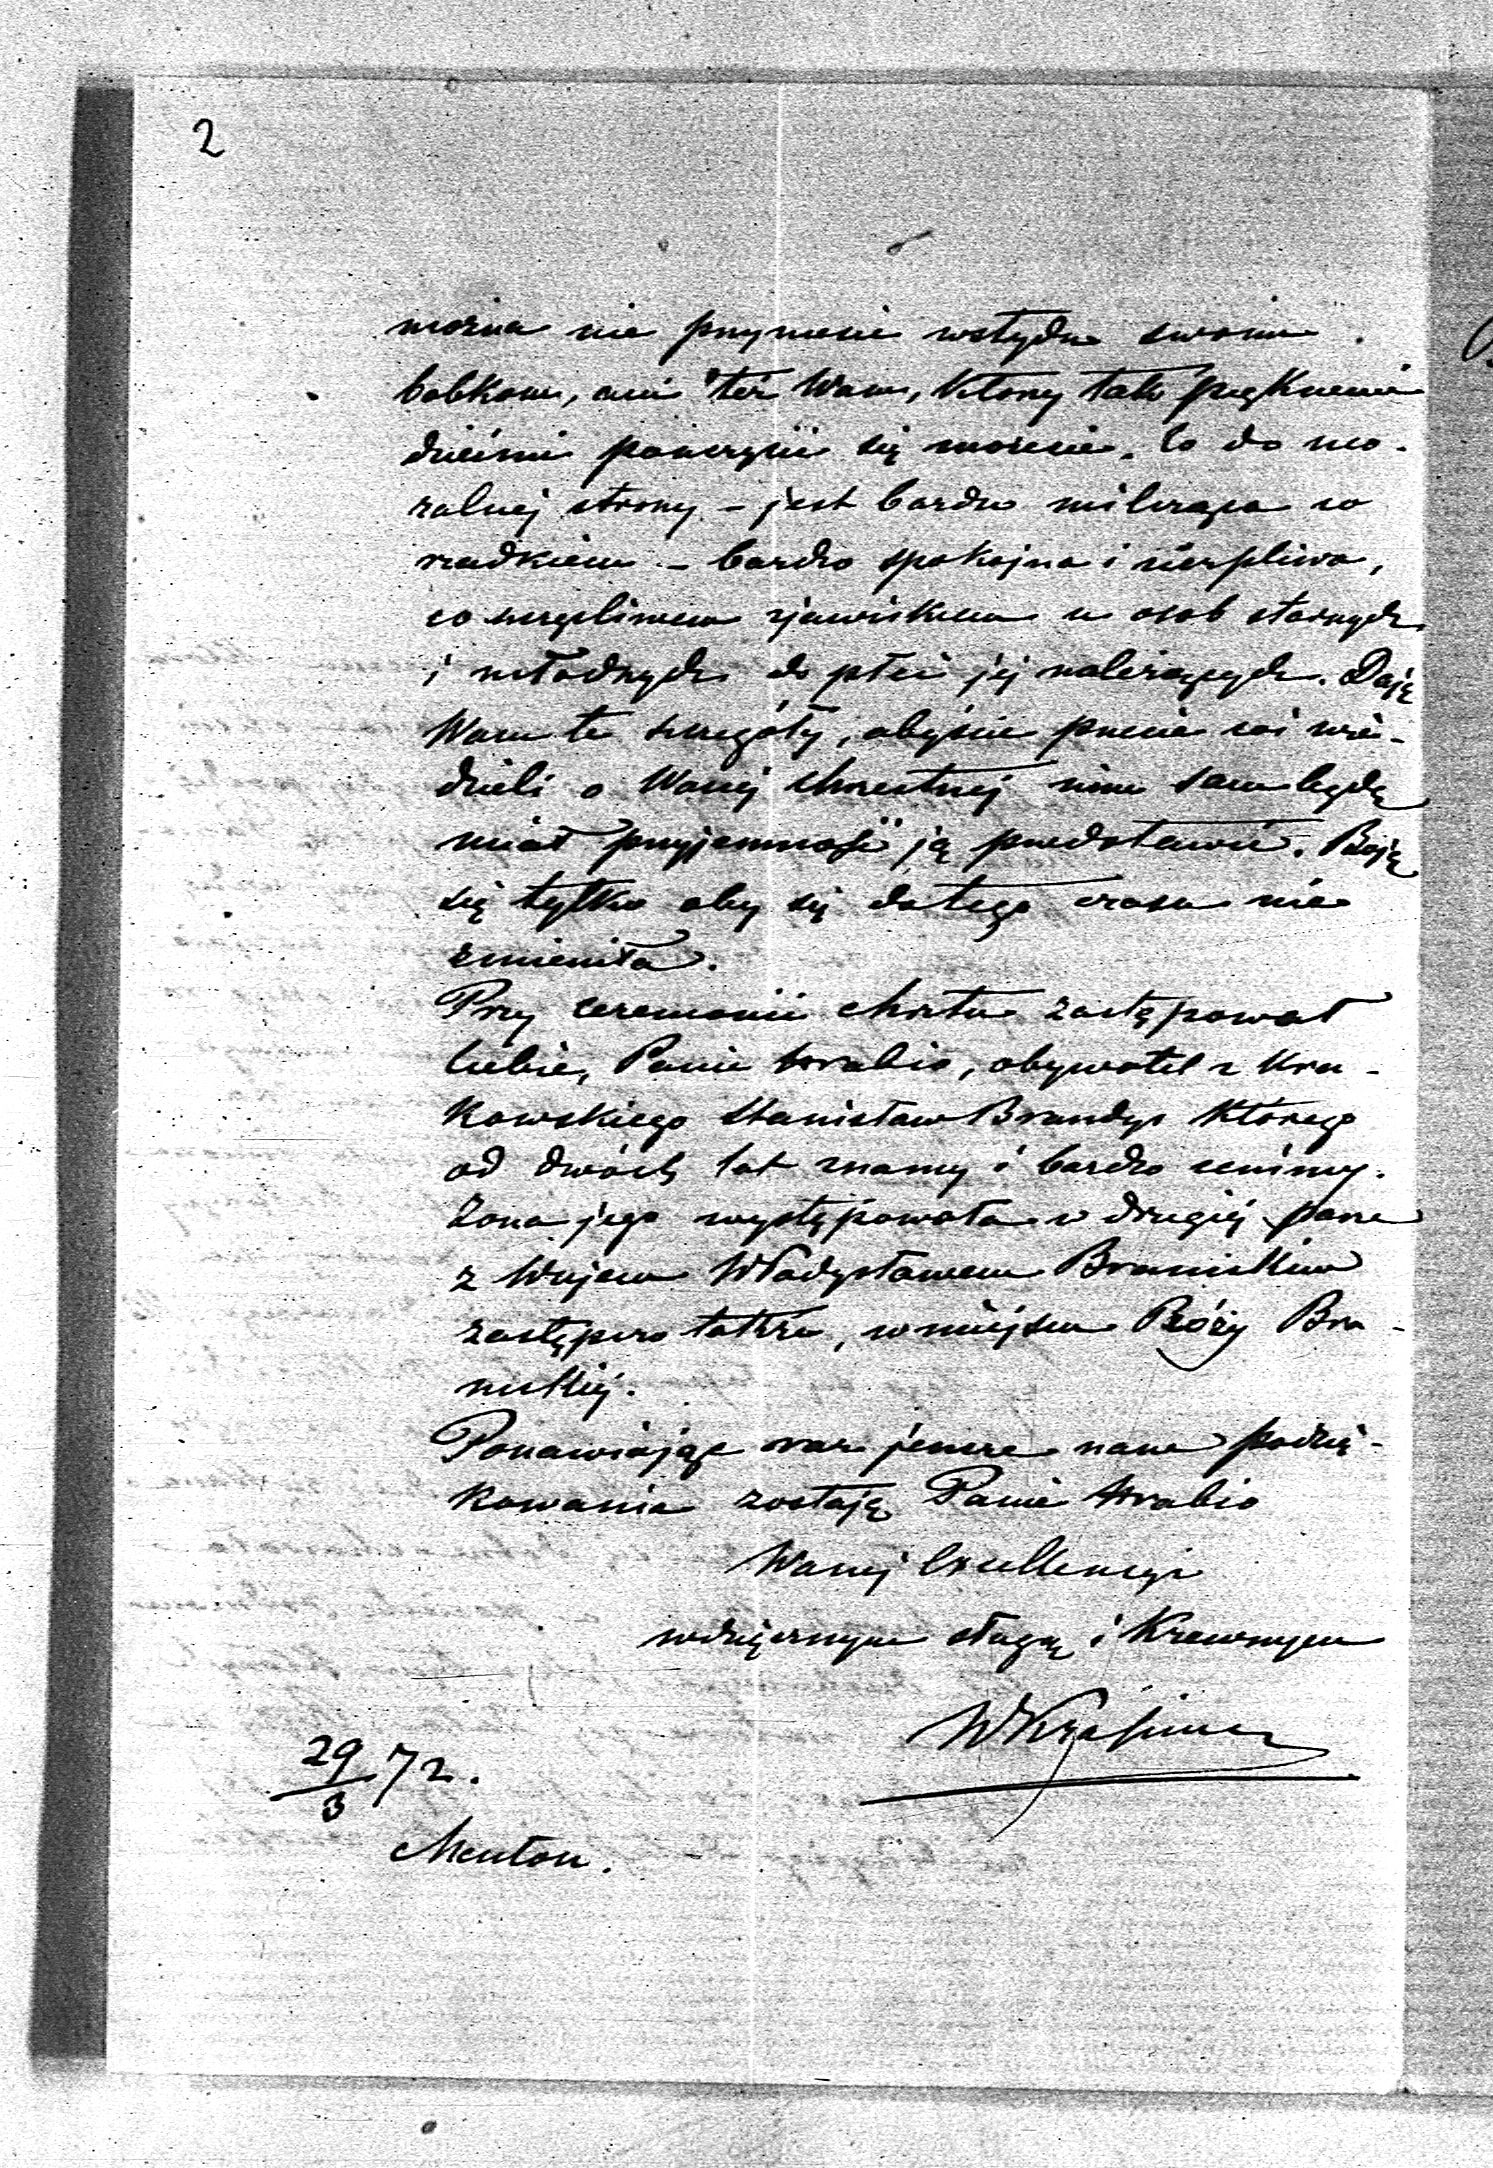 2
można nie przyniesie wstydu swoim
babkom, ani też Wam, którzy tak pięknemi
dziećmi poszczycić się możecie. Co do mo-
ralnej strony – jest bardzo milcząca co
rzadkiem – bardzo spokojna i cierpliwa,
co szczęśliwem zjawiskiem u osób starszych
i młodszych do płci jej należących. Daję
Wam te szczegóły, abyście przecie coś wie-
dzieli o Waszej chrzestnej nim sam będę
miał przyjemność ją przedstawić. Boję
się tylko aby się do tego czasu nie
zmieniła.
Przy ceremonii chrztu zastępował
Ciebie, Panie Hrabio, obywatel z Kra-
kowskiego Stanisław Brandys którego
od dwóch lat znamy i bardzo cenimy.
Żona jego występowała w drugiej parze
z Wujem Władysławem Branickim
zastępczo także, w miejscu Róży Bra-
nickiej.
Ponawiając raz jeszcze nasze podzię-
kowania zostaję Panie Hrabio
Waszej Excellencyi
wdzięcznym sługą i Krewnym
WKrasiński
29/3 72.
Menton.